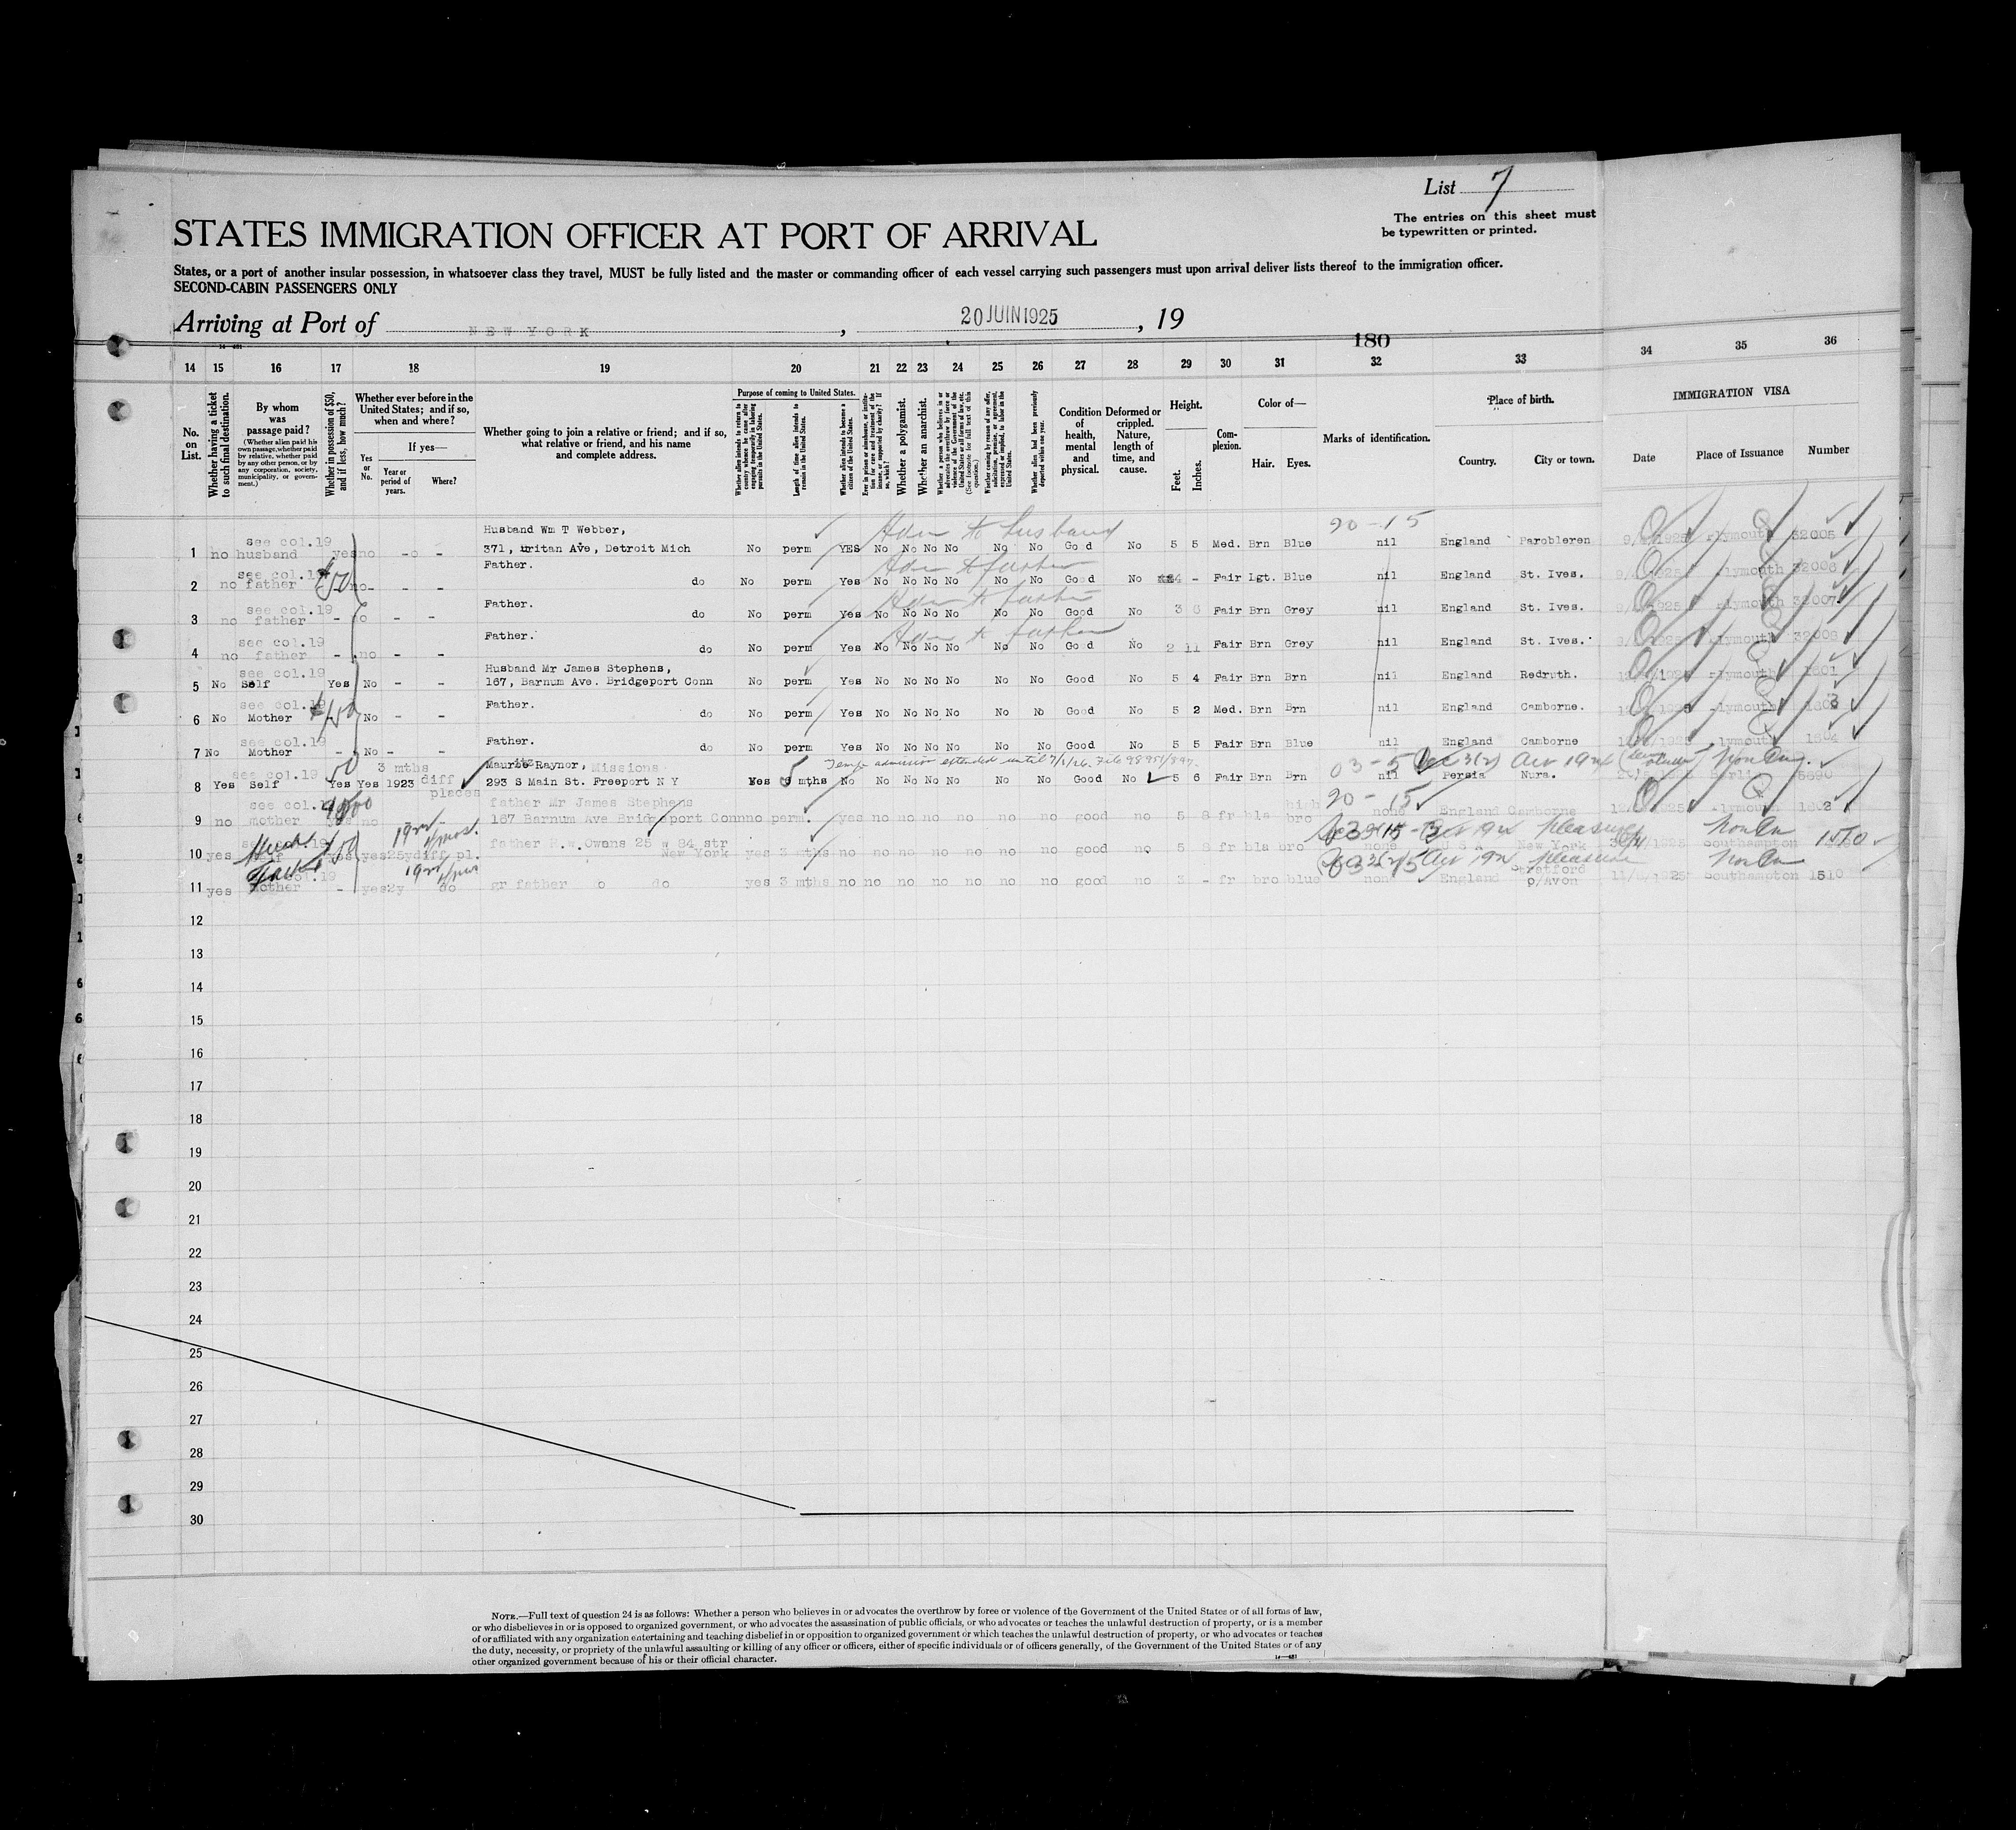 List 7
The entries on this sheet must
be typewritten or printed.
STATES IMMIGRATION OFFICER AT PORT OF ARRIVAL
States, or a port of another insular possession, in whatsoever class they travel, MUST be fully listed and the master or commanding officer of each vessel carrying such passengers must upon arrival deliver lists thereof to the immigration officer.
SECOND-CABIN PASSENGERS ONLY
Arriving at Port of NEW YORK , 20 JUIN 1925 , 19
180
14 15 16 17 18 19 20 21 22 23 24 25 26 27 28 29 30 31 32 33 34 35 36
No. on List.
Whether having a ticket to such final destination.
By whom was passage paid?
(Whether alien paid his own passage, whether paid by relative, whether paid by any other person, or by any corporation, society, municipality, or government.)
Whether in possession of $50, and if less, how much?
Whether ever before in the United States; and if so, when and where?
Yes or No.
If yes—
Year or period of years.
Where?
Whether going to join a relative or friend; and if so, what relative or friend, and his name and complete address.
Purpose of coming to United States.
Whether alien intends to return to country whence he came after engaging temporarily in laboring pursuits in the United States.
Length of time alien intends to remain in the United States.
Whether alien intends to become a citizen of the United States.
Ever in prison or almshouse, or institution for care and treatment of the insane, or supported by charity? If so, which?
Whether a polygamist.
Whether an anarchist.
Whether a person who believes in or advocates the overthrow by force or violence of the Government of the United States or all forms of law, etc. (See footnote for full text of this question.)
Whether coming by reason of any offer, solicitation, promise, or agreement, expressed or implied, to labor in the United States.
Whether alien had been previously deported within one year.
Condition of health, mental and physical.
Deformed or crippled. Nature, length of time, and cause.
Height.
Feet. Inches.
Complexion.
Color of—
Hair. Eyes.
Marks of identification.
Place of birth.
Country. City or town.
IMMIGRATION VISA
Date Place of Issuance Number
Husband Wm T Webber, Adm to husband 20-15
1 no see col.19 husband yes no - o - 371, uritan Ave, Detroit Mich No perm YES No No No No No No Good No 5 5 Med. Brn Blue nil England Parobleren Plymouth 32005
Father. Adm to father
2 no see col.19 father 50 no - - - do No perm Yes No No No No No No Good No 4 - Fair Lgt. Blue nil England St. Ives. Plymouth 32006
Father. Adm to father
3 no see col.19 father - - - do No perm Yes No No No No No No Good No 3 Fair Brn Grey nil England St. Ives. Plymouth 32007
Father. Adm to father
4 no see col.19 father - no - - do No perm Yes No No No No No No Good No 2 11 Fair Brn Grey nil England St. Ives. Plymouth 32008
Husband Mr James Stephens,
5 No see col.19 Self Yes No - - 167, Barnum Ave. Bridgeport Conn No perm Yes No No No No No No Good No 5 4 Fair Brn Brn nil England Redruth. Plymouth 1801
Father.
6 No see col.19 Mother 50 No - - do No perm Yes No No No No No No Good No 5 2 Med. Brn Brn nil England Camborne. Plymouth 1803
Father.
7 No see col.19 Mother - No - - do No perm Yes No No No No No No Good No 5 5 Fair Brn Blue nil England Camborne Plymouth 1804
Mauritz Raynor, Missions Temp admission extended until 03-5
8 Yes see col.19 Self Yes 50 Yes 3 mths 1923 diff places 293 S Main St. Freeport N Y Yes mths No No No No No No No Good No 5 6 Fair Brn Brn nil Persia Nura. 5690
father Mr James Stephens 20-15
9 no see col.19 mother no 167 Barnum Ave Bridgeport Conn no perm. yes no no no no no no good no 5 8 fr bla bro none England Camborne Plymouth 1802
father R.w.Owens 25 w 84 str New York
10 yes yes diff pl. yes 3 mths no no no no no no no good no 5 8 fr bla bro none U S A New York pleasure Southampton
11 yes see col.19 mother - yes 2y do gr father do yes 3 mths no no no no no no no good no 3 - fr bro blue none England Stratford o/Avon pleasure Southampton 1510
12
13
14
15
16
17
18
19
20
21
22
23
24
25
26
27
28
29
30
NOTE.—Full text of question 24 is as follows: Whether a person who believes in or advocates the overthrow by force or violence of the Government of the United States or of all forms of law,
or who disbelieves in or is opposed to organized government, or who advocates the assassination of public officials, or who advocates or teaches the unlawful destruction of property, or is a member
of or affiliated with any organization entertaining and teaching disbelief in or opposition to organized government or which teaches the unlawful destruction of property, or who advocates or teaches
the duty, necessity, or propriety of the unlawful assaulting or killing of any officer or officers, either of specific individuals or of officers generally, of the Government of the United States or of any
other organized government because of his or their official character.